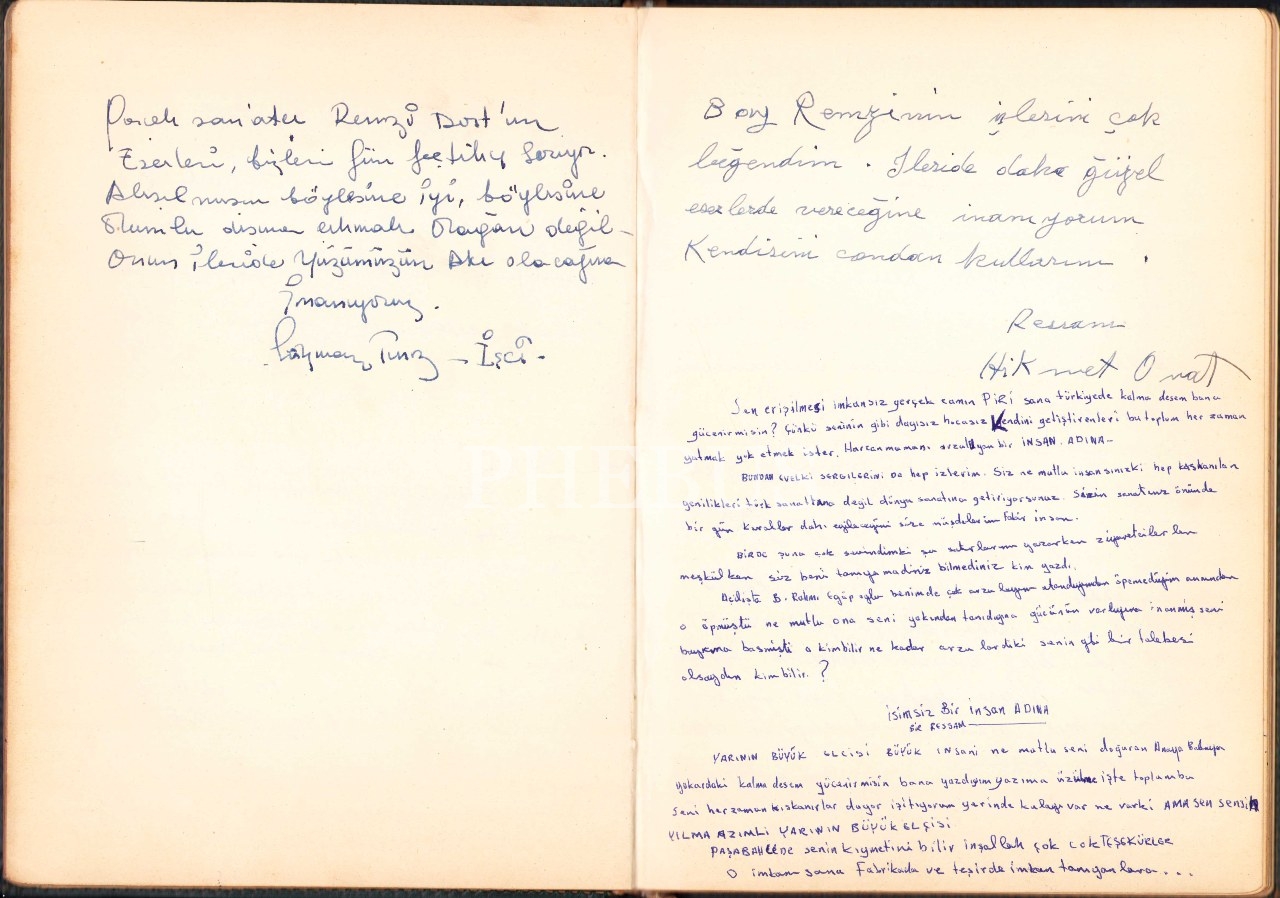 san'atcı Remzi Dost'un
Eserleri, bizleri gün geçtikçe sarıyor.
böylesine iyi, böylesine
Olumlu Olağan değil-
Onun İleride Yüzümüzün Akı olacağına
İnanıyoruz.
- İşçi -
Bay Remzinin işlerini çok
beğendim. İleride daha güzel
eserlerde vereceğine inanıyorum
Kendisini candan kutlarım.
Ressam
Hikmet Onat
Sen erişilmesi imkansız gerçek camın PiRi sana türkiyede kalma desem bana
gücenirmisin? Çünkü seninin gibi dayısız hocasız Kendini geliştirenleri bu toplum her zaman
yutmak yok etmek ister. Harcanmamanı bir iNSAN ADINA-
BUNDAN EVELKi SERGiLERiNi DE hep izlerim. Siz ne mutlu insansınızki hep kıskanılan
yenilikleri türk sanatına değil dünya sanatına getiriyorsunuz. Sizin sanatınız önünde
bir gün kurallar dahi eğileceğini size müjdelerim Fakir insan.
BiRDE şuna çok sevindimki şu satırlarımı yazarken ziyaretcilerlen
meşkülken siz beni tanıyamadınız bilmediniz kim yazdı.
Açılışta B. Rahmi Eyüpoğlu benimde çok
o öpmüştü ne mutlu ona seni yakından tanıdığına gücünün varlığına inanmış seni
bağrına basmıştı o kimbilir ne kadar arzulardıki senin gibi bir talebesi
olsaydın kimbilir.?
iSiMSiZ Bir insan ADINA
BiR RESSAM
YARININ BÜYÜK ELÇiSi BÜYÜK iNSANi ne mutlu seni doğuran Anaya Babaya
yokardaki kalma desem gücenirmisin bana yazdığım yazıma üzülme işte toplumbu
seni herzaman kıskanırlar duyar işitiyorum yerinde kulağı var ne varki AMA SEN SENSiN
YILMA AZIMLi YARININ BÜYÜK ELÇiSi
PAŞABAHÇEDE senin kıymetini bilir inşallah çok çok TEŞEKÜRLER
O imkanı sana Fabrikada ve teşirde imkan tanıyanlara...